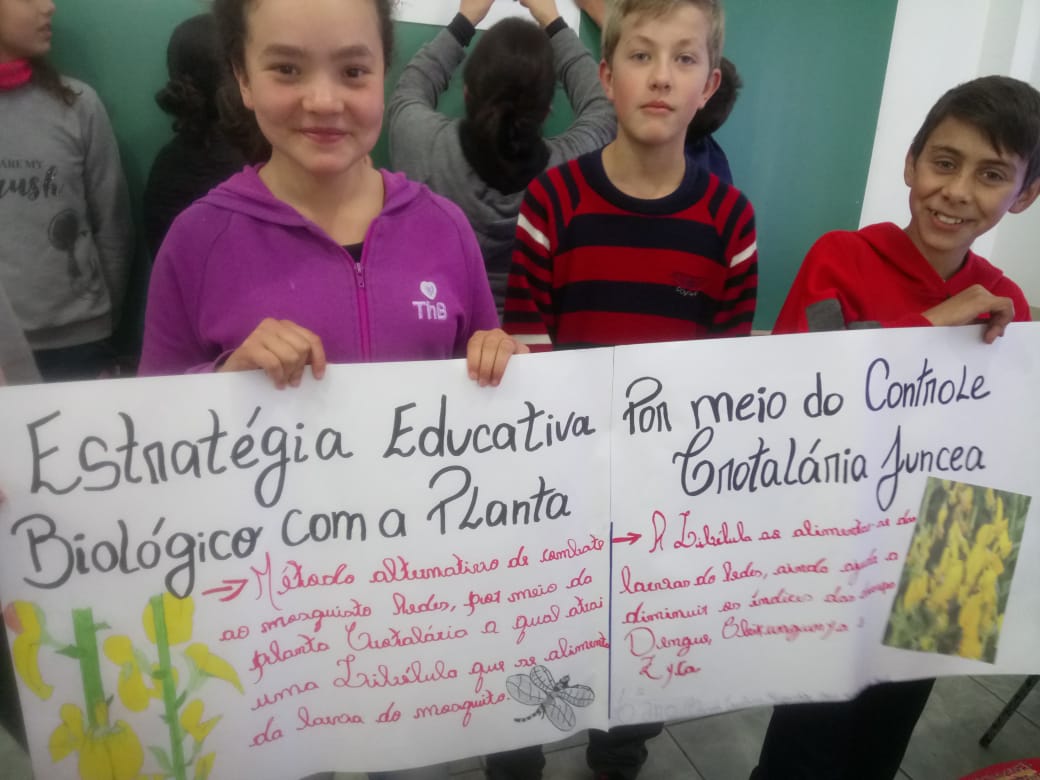 ARE MY
ThB
Estratégia Educativa Por meio do Controle
Biológico com a Planta Crotalária Juncea
→ Método alternativo de combate
ao mosquisto Aedes, por meio da
planta Crotalária a qual atrai
uma Libélula que se alimenta
da larva do mosquito.
→ A Libélula ao alimentar-se das
larvas do Aedes, ajuda a
diminuir os índices das
Dengue,
Zyca